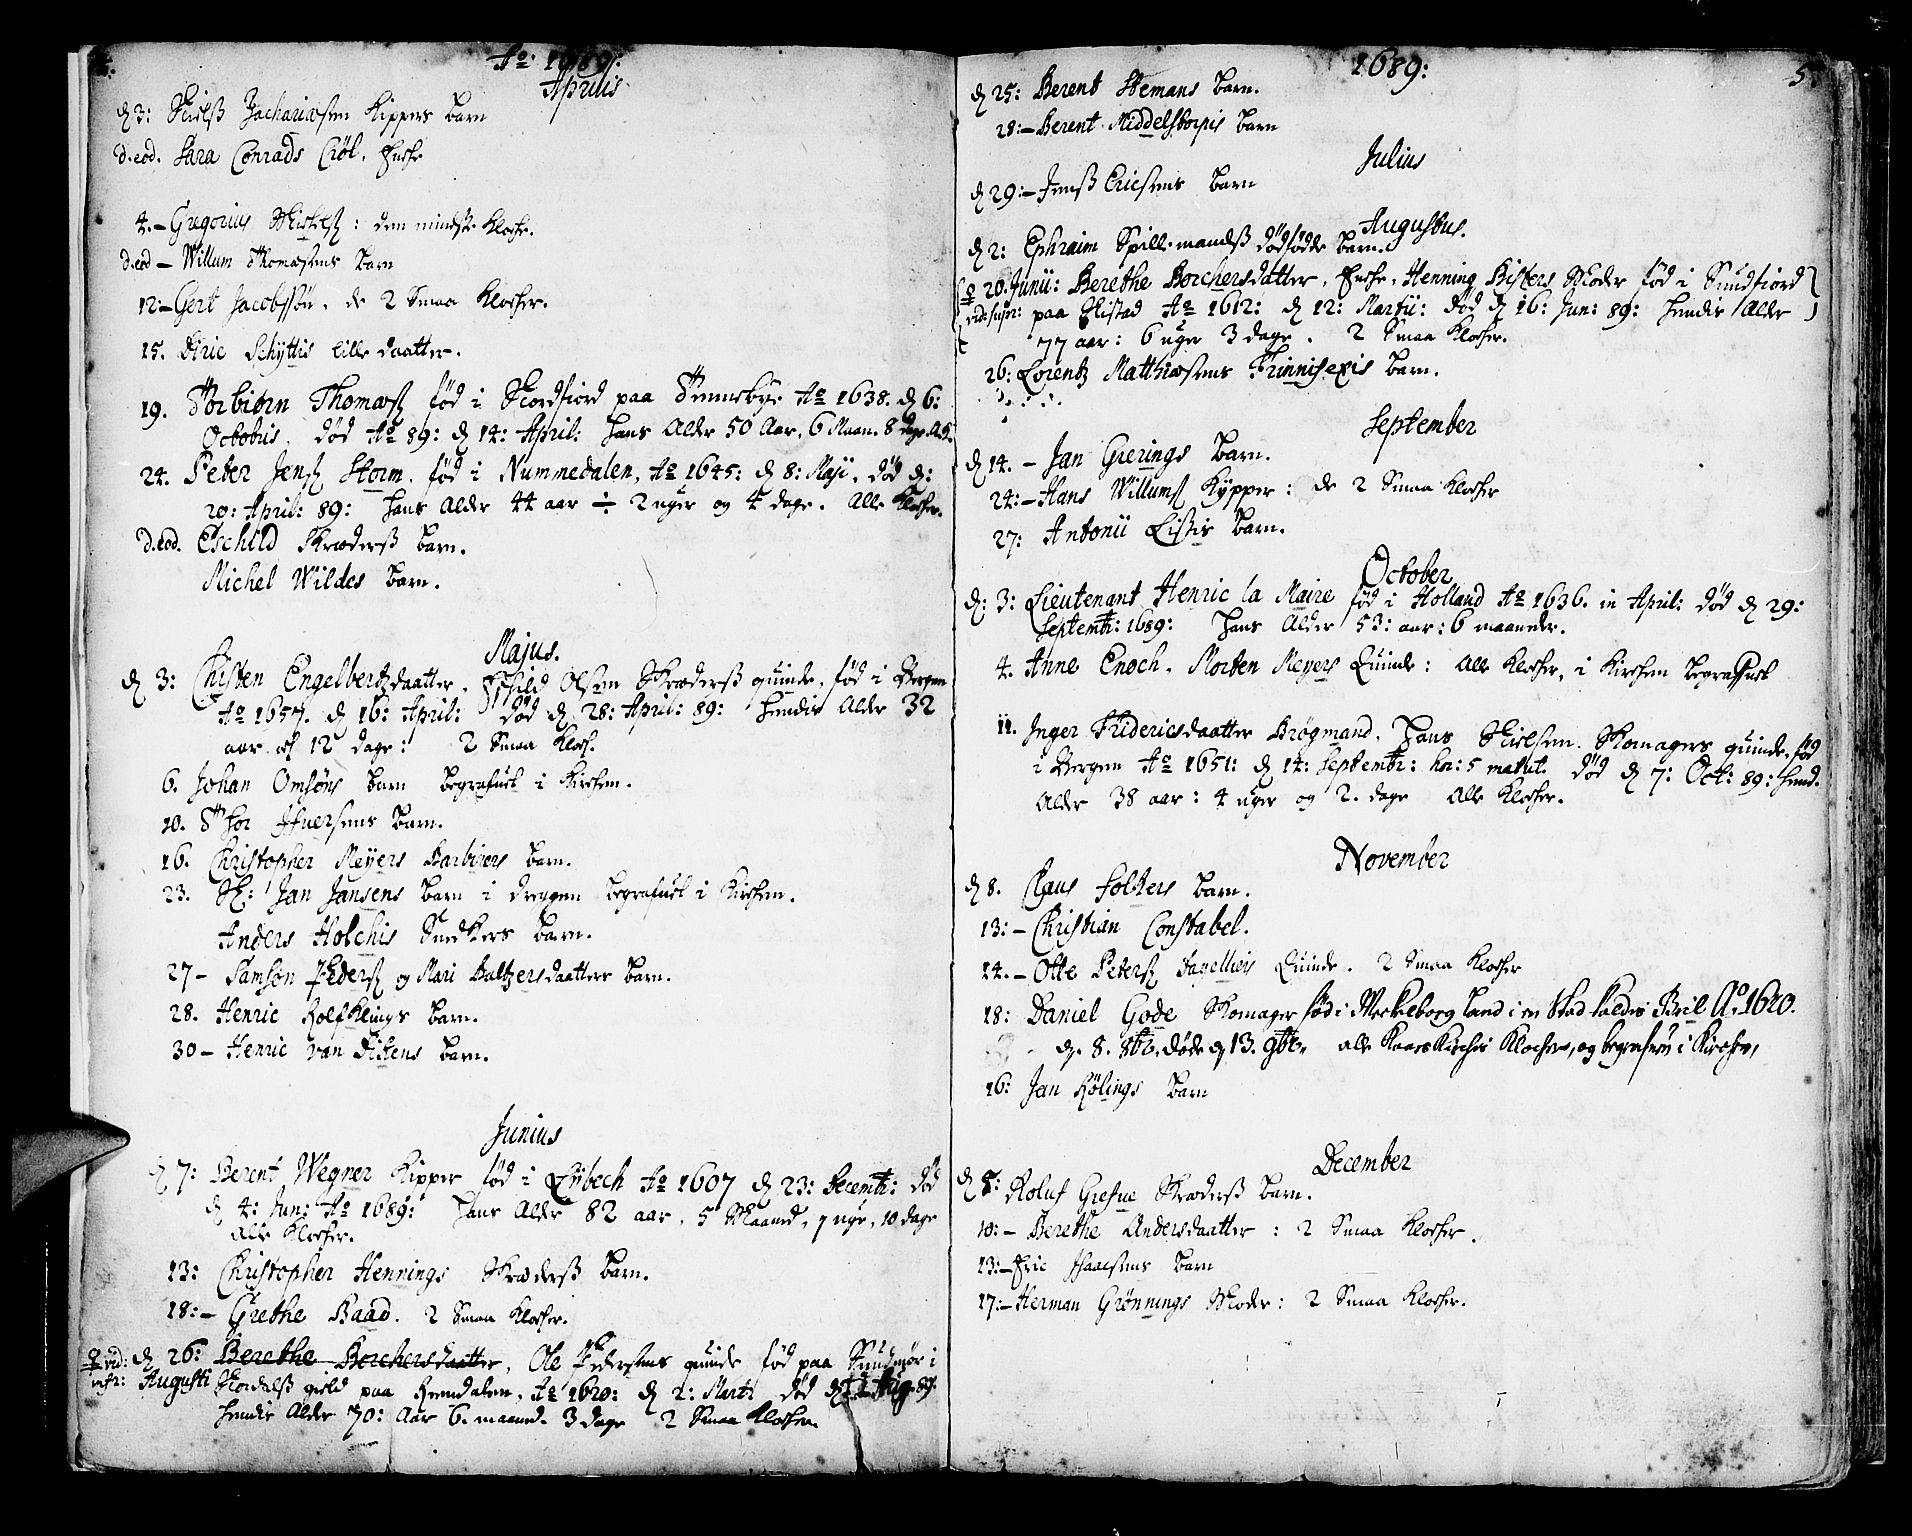 Ao: 1689:
Aprilis
d 3: Nielß Zachariæsen Kippers barn
d.eod. Sara Conrads Crøl. Encke
4. – Gregorius Michelß: den mindste Klocke.
d.eod – Willum Thomæsens barn
12: – Gert Jacobssøn, de 2 Smaa Klocker.
15. Diric Schyttis lille daatter.
19. Torbiørn Thomæsß fød i Nordfiord paa Ao 1638. d 6:
Octobris. død Ao 89: d 14: April: hans Alder 50 Aar, 6 Maan. 8 dage
24. Peter Jensß Storm, fød i Nummedalen, Ao 1645: d 8: Maji, død d:
20: April: 89: hans Alder 44 aar ÷ 2 uger og 4 dage. Alle Klocker.
d.eod. Eschild Skræderß barn.
Michel Wildes barn.
Majus.
d 3: Chisten Engelbertzdaatter, Eschild Olsøn Skræderß quinde, fød i Bergen
Ao 1657. d 16: April: død d 28: April: 89: hendis Alder 32
aar och 12 dage: 2 Smaa Klock.
6. Johan Omsøns barn begrafuet i Kircken.
10. Thor Ifuersens barn.
16. Christopher Meyers Barbirers barn.
23. Sr: Jan Jansens barn i dreggen begrafuet i Kircken.
Anders Holchis Snedkers barn.
27 – Samson Pedersß og Mari Baltzersdaatters barn.
28. Henric Rolfklings barn.
30 – Henric van Dikens barn.
Junius
d 7: Berent Wegner Kipper fød i Lybech Ao 1607 d 23: Decembr: død
d 4: Jun: Ao 1689: hans Alder 82 aar, 5 Maaned, 7 uger, 10 dage
alle Klocker.
13: Christopher Hennings Skræderß barn.
18: – Grethe Baad. 2 Smaa Klocker.
vid: d 26: Berethe Borchersdaatter, Ole Pedersens quinde fød paa Sundmør i
Augusti gield paa Romdalen, Ao 1620: d 2: Marti død d Aug. 89.
hendis Alder 70: Aar 6. maaned. 3 dage 2 Smaa Klocker
1689: 5.
d 25: Berent Stemans barn.
28: – Berent Middelstorpis barn
Julius
d 29: – Jenß Ericsens barn
Augustus.
d 2: Ephraim Spillemandß dødfødde barn.
20. Junii: Berethe Borchersdatter, Encke, Henning Bisters Moder fød i Sundfiord
paa Elistad Ao 1612: d 12: Martii: død d 16: Jun: 89: hendis Alder
77 aar: 6 uger 3 dage. 2 Smaa Klocker.
26: Lorentz Matthiæsens barn.
September
d 14. – Jan Grerings barn.
24: – Hans Willumsß Kypper: de 2 Smaa Klocker
27: Antonii Lissis barn.
October
d: 3: Lieutenant Henric la Maire fød i Holland Ao 1636. in April: død d 29:
Septembr: 1689: hans Alder 53: aar: 6 maaneder.
4. Anne Enoch, Morten Meyers Quinde: Alle Klocker, i Kircken begrafuet
11. Inger Fridericsdaatter Brøgmand, Hans Nielsen Skomagers quinde, fød
i Bergen Ao 1651: d 14: Septembr: hor: 5 matut. død d 7: Oct: 89: hend.
Alder 38 aar: 4 uger og 2. dage Alle Klocker.
November
d 8. Claus Folkers barn.
13: – Christian Constabel.
14. – Otte Petersß Quinde. 2 Smaa Klocker
18: Daniel Gode Skomager fød i Meckelborg Land i en Stad kaldis Bril Ao. 1620.
d. 8. 8br. døde d 13. 9br. alle Kaars Kirckis Klocker, og begrafuen i Kircken,
16: Jan Rølings barn
December
d 8: Roluf Grefue Skræderß barn.
10: – Berethe Andersdaatter: 2 Smaa Klocker.
13: – Eric Haacsens barn
17: – Herman Grønnings Moder: 2 Smaa Klocker.